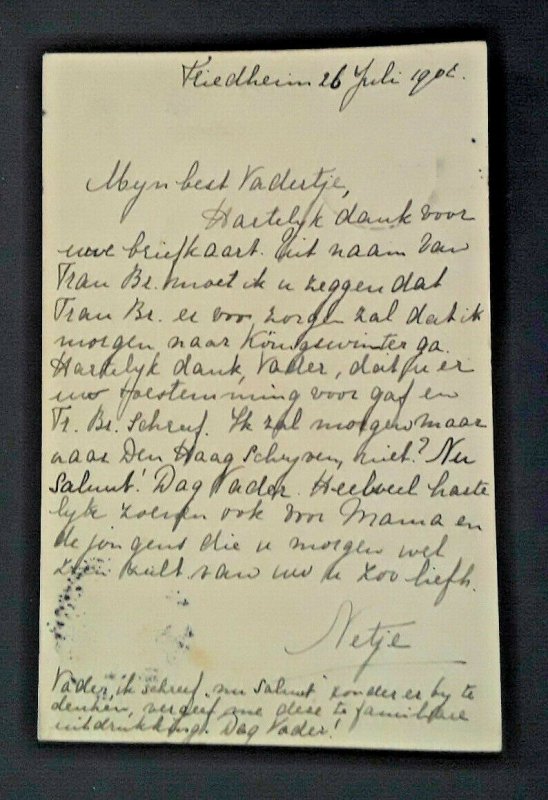 Friedheim 26 Juli 190
Myn best Vadertje,
Hartelyk dank voor
uwe briefkaart. Uit naam van
Frau Br. moet ik u zeggen dat
Frau Br. er voor zorgen zal dat ik
morgen naar Königswinter ga.
Hartelyk dank, Vader, dat u er
uw toestemming voor gaf en
Fr. Br. schreef. Ik zal morgen maar
naar Den Haag schryven, niet? Nu
Saluut! Dag Vader. Heelveel harte
lyke zoenen ook voor Mama en
de jongens die u morgen wel
zien zult van uw u zoo liefh.
Netje
Vader, ik schreef "nu Saluut" zonder er by te
denken, vergeef me deze te familiare
uitdrukking. Dag Vader!